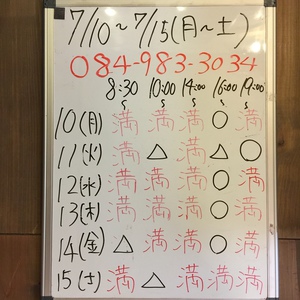 7/10~7/15(月~土)
084-983-3034
8:30~ 10:00~ 14:00~ 16:00~ 19:00~
10(月) 満 満 満 ○ 満
11(火) 満 △ 満 △ ○
12(水) 満 満 満 ○ 満
13(木) 満 満 満 ○ 満
14(金) △ 満 満 ○ 満
15(土) 満 △ 満 満 満